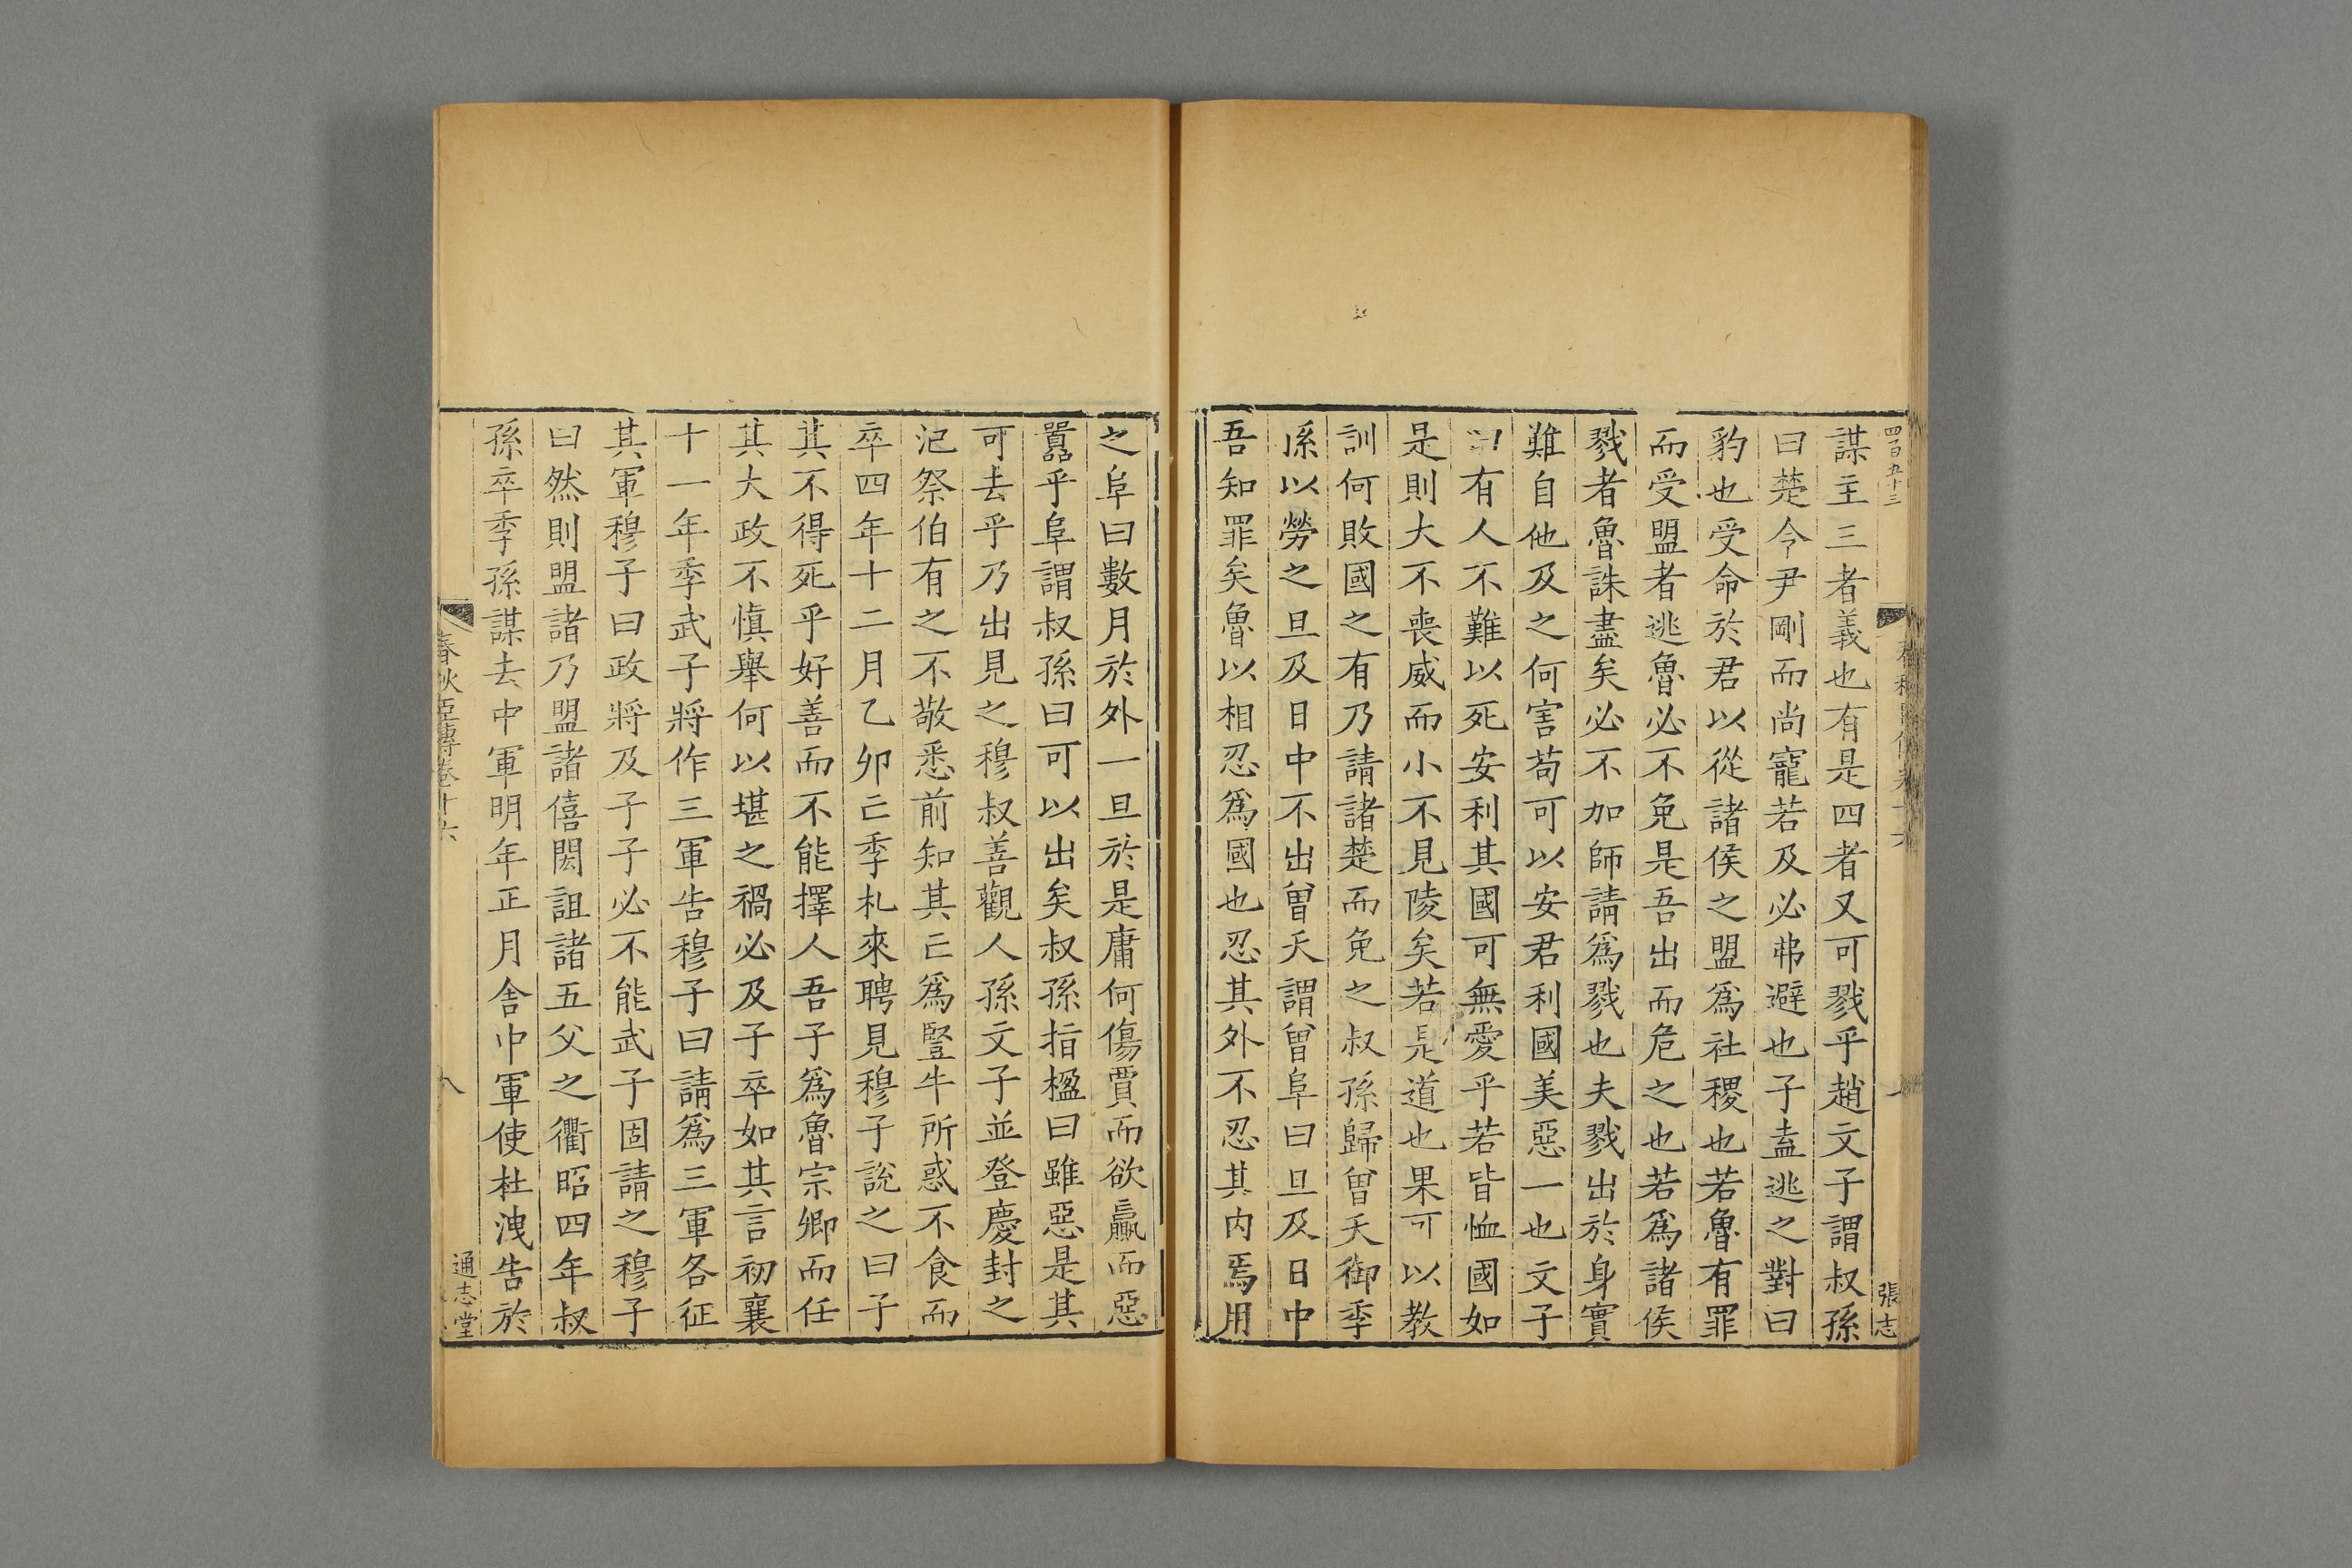 四百五十三
張志
謀主三者義也有是四者又可戮乎趙文子謂叔孫
曰楚令尹剛而尚寵若及必弗避也子盍逃之對曰
豹也受命於君以從諸侯之盟爲社稷也若魯有罪
而受盟者逃魯必不免是吾出而危之也若爲諸侯
戮者魯誅盡矣必不加師請爲戮也夫戮出於身實
難自他及之何害苟可以安君利國美惡一也文子
有人不難以死安利其國可無愛乎若皆恤國如
是則大不喪威而小不見陵矣若是道也果可以教
訓何敗國之有乃請諸楚而免之叔孫歸曾夭御季
孫以勞之旦及日中不出曾夭謂曾阜曰旦及日中
吾知罪矣魯以相忍爲國也忍其外不忍其内焉用
之阜曰數月於外一旦於是庸何傷賈而欲贏而惡
囂乎阜謂叔孫曰可以出矣叔孫指楹曰雖惡是其
可去乎乃出見之穆叔善觀人孫文子並登慶封之
氾祭伯有之不敬悉前知其亡爲豎牛所惑不食而
卒四年十二月乙卯亡季札來聘見穆子說之曰子
其不得死乎好善而不能擇人吾子爲魯宗卿而任
其大政不愼舉何以堪之禍必及子卒如其言初襄
十一年季武子將作三軍告穆子曰請爲三軍各征
其軍穆子曰政將及子子必不能武子固請之穆子
曰然則盟諸乃盟諸僖閎詛諸五父之衢昭四年叔
孫卒季孫謀去中軍明年正月舍中軍使杜洩告於
春秋臣傳卷十六
八
通志堂